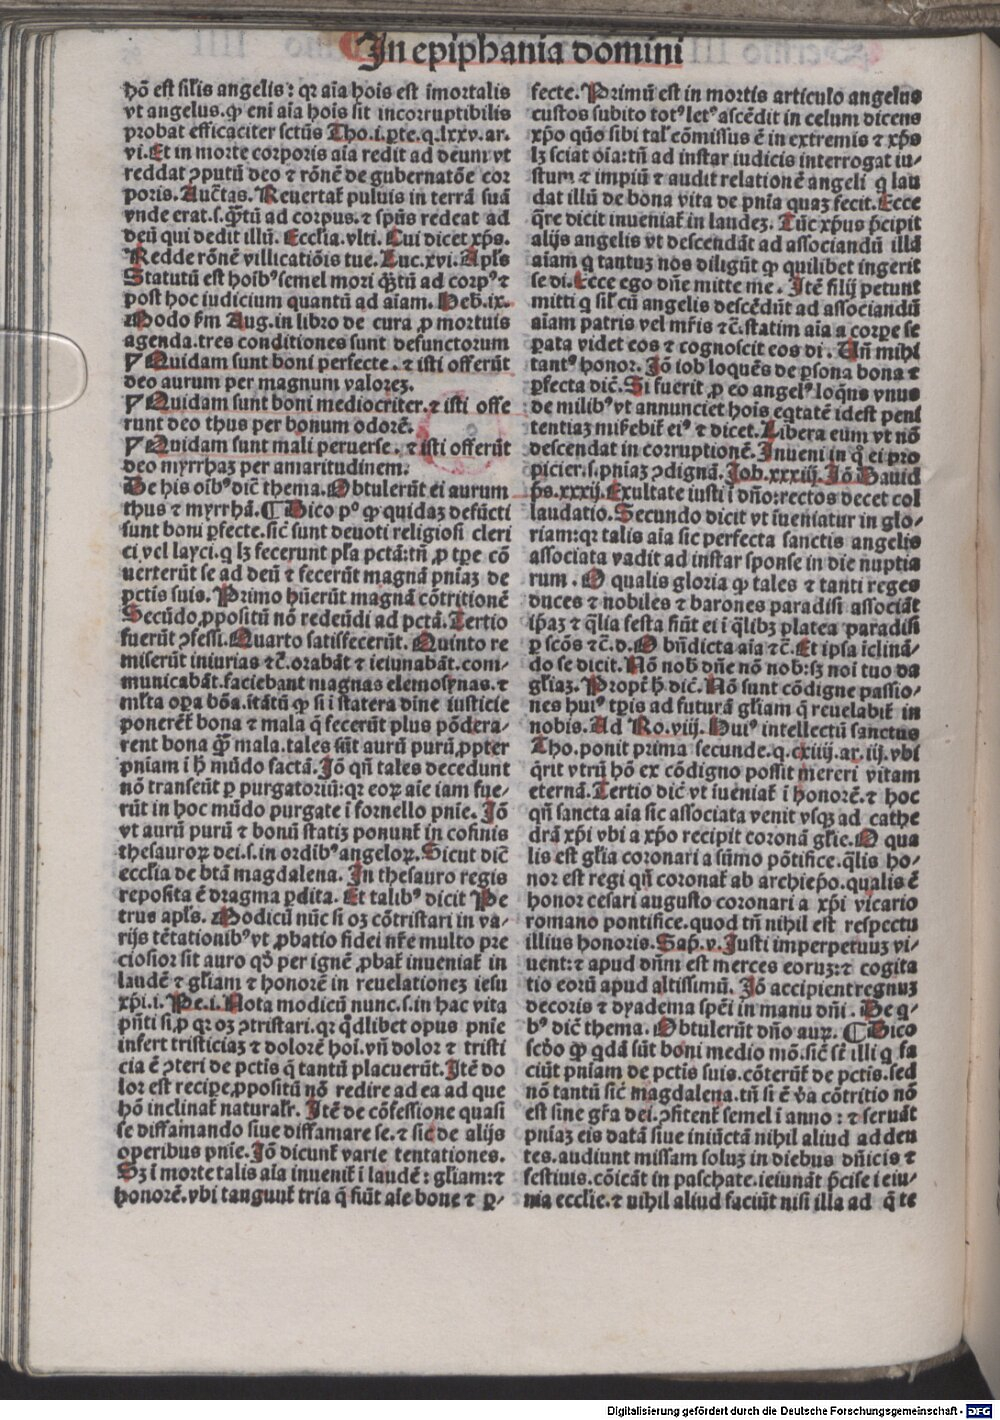 In epiphania domini
hõ est sil̃is angelis: qꝛ aĩa hoĩs est ĩmortalis
vt angelus. ꝙ eni aĩa hoĩs sit incorruptibilis
probat efficaciter sctũs Tho. i. ꝑte. q. lxxv. ar.
vi. Et in morte corporis aĩa redit ad deum vt
reddat ꝯputũ deo ⁊ rõnẽ de gubernatõe cor
poris. Auct̃as. Reuertat̃ puluis in terrã suã
vnde erat. s. qͣꝫtũ ad corpus. ⁊ spũs redeat ad
deũ qui dedit illũ. Eccl̃ia. vlti. Cui dicet xp̃s.
Redde rõnẽ villicatiõis tue. Luc. xvi. Apl̃s
Statutũ est hoĩbꝰ semel mori qͣꝫtũ ad corpꝰ ⁊
post hoc iudicium quantũ ad aĩam. Heb. ix.
Modo ẜm Aug. in libro de cura ꝓ mortuis
agenda. tres conditiones sunt defunctorum
¶ Quidam sunt boni perfecte. ⁊ isti offerũt
deo aurum per magnum valoreꝫ.
¶ Quidam sunt boni mediocriter. ⁊ isti offe
runt deo thus per bonum odorẽ.
¶ Quidam sunt mali peruerse. ⁊ isti offerũt
deo myrrhaꝫ per amaritudinem.
De his oĩbꝰ dic̃ thema. Obtulerũt ei aurum
thus ⁊ myrrhã. ¶ Dico pº ꝙ quidaꝫ defũcti
sunt boni ꝑfecte. sic̃ sunt deuoti religiosi cleri
ci vel layci. q lꝫ fecerunt pl̃a pctã: tñ ꝓ tꝑe cõ
uerterũt se ad deũ ⁊ fecerũt magnã pniaꝫ de
pctis suis. Primo hũerũt magnã cõtritionẽ
Secũdo ꝓpositũ nõ redeũdi ad pctã. Tertio
fuerũt ꝯfessi. Quarto satisfecerũt. Quinto re
miserũt iniurias ⁊c̃. orabãt ⁊ ieiunabãt. com-
municabãt. faciebant magnas elemosynas. ⁊
ml̃ta oꝑa bõa. itãtũ ꝙ si i statera diñe iusticie
ponerẽt̃ bona ⁊ mala q̃ fecerũt plus põdera-
rent bona qͣꝫ mala. tales sũt aurũ purũ ꝓpter
pniam i h̃ mũdo factã. Jõ qñ tales decedunt
nõ transeũt ꝑ purgatoriũ: qꝛ eoꝝ aĩe iam fue-
rũt in hoc mũdo purgate i fornello pnie. Jõ
vt aurũ purũ ⁊ bonũ statiꝫ ponunt̃ in cofinis
thesauroꝝ dei. s. in ordibꝰ angeloꝝ. Sicut dic̃
eccl̃ia de btã magdalena. In thesauro regis
reposita ẽ dragma ꝑdita. Et talibꝰ dicit Pe
trus apl̃s. Modicũ nũc si oꝫ cõtristari in va-
rijs tẽtationibꝰ vt ꝓbatio fidei nr̃e multo pre
ciosior sit auro qd̃ per ignẽ ꝓbat̃ inueniat̃ in
laudẽ ⁊ gl̃iam ⁊ honorẽ in reuelationeꝫ iesu
xp̃i. i. Pe. i. Nota modicũ nunc. s. in hac vita
pñti si ꝓ qꝛ oꝫ ꝯtristari. qꝛ qͦdlibet opus pnie
infert tristiciaꝫ ⁊ dolorẽ hoĩ. vñ dolor ⁊ tristi
cia ẽ ꝯteri de pctis q̃ tantũ placuerũt. Itẽ do
lor est recipe ꝓpositũ nõ redire ad ea ad que
hõ inclinat̃ naturalr̃. Itẽ de cõfessione quasi
se diffamando siue diffamare se. ⁊ sic̃ de alijs
operibus pnie. Jõ dicunt̃ varie tentationes.
Sꝫ i morte talis aĩa inuenit̃ i laudẽ: gl̃iam: ⁊
honorẽ. vbi tangunt̃ tria q̃ fiũt aĩe bone ⁊ ꝑ-
fecte. Primũ est in mortis articulo angelus
custos subito totꝰ letꝰ ascẽdit in celum dicens
xp̃o qũs sibi tal̃ cõmissus ẽ in extremis ⁊ xp̃s
lꝫ sciat oĩa: tñ ad instar iudicis interrogat iu-
stum ⁊ impiũ ⁊ audit relationẽ angeli q lau
dat illũ de bona vita de pnia quaꝫ fecit. Ecce
q̃re dicit inueniat̃ in laudeꝫ. Tũc xp̃us p̃cipit
alijs angelis vt descendãt ad associandũ illã
aĩam q tantuꝫ nos diligũt ꝙ quilibet ingerit
se di. Ecce ego dñe mitte me. Itẽ filij petunt
mitti q sil̃ cũ angelis descẽdũt ad associandũ
aĩam patris vel mr̃is ⁊c̃. statim aĩa a corꝑe se
ꝑata videt eos ⁊ cognoscit eos di. Uñ mihi
tantꝰ honor. Jõ iob loquẽs de ꝑsona bona ⁊
ꝑfecta dic̃. Si fuerit ꝓ eo angelꝰ loq̃ns vnus
de milibꝰ vt annunciet hoĩs eq̃tatẽ idest peni
tentiaꝫ miẜebit̃ eiꝰ ⁊ dicet. Libera eum vt nõ
descendat in corruptionẽ. Inueni in q̃ ei pro
picier. s. pniaꝫ ꝯdignã. Job. xxxiij. Jõ Dauid
ps̃. xxxij. Exultate iusti i dño: rectos decet col
laudatio. Secundo dicit vt iueniatur in glo-
riam: qꝛ talis aĩa sic perfecta sanctis angelis
associata vadit ad instar sponse in die nuptia
rum. O qualis gloria ꝙ tales ⁊ tanti reges
duces ⁊ nobiles ⁊ barones paradisi associãt
ip̃aꝫ ⁊ q̃lia festa fiũt ei i q̃libꝫ platea paradisi
ꝑ scõs ⁊c̃. d. O bñdicta aĩa ⁊c̃. Et ipsa iclinã-
do se dicit. Nõ nob dñe nõ nob: sꝫ noĩ tuo da
gl̃iaꝫ. Propt̃ h̃ dic̃. Nõ sunt cõdigne passio-
nes huiꝰ tꝑis ad futurã gl̃iam q̃ reuelabit̃ in
nobis. Ad Ro. viij. Huiꝰ intellectũ sanctus
Tho. ponit prima secunde. q. cxiiij. ar. iij. vbi
q̃rit vtrũ hõ ex cõdigno possit mereri vitam
eternã. Tertio dic̃ vt iueniat̃ i honorẽ. ⁊ hoc
qñ sancta aĩa sic associata venit vsqꝫ ad cathe
drã xp̃i vbi a xp̃o recipit coronã gl̃ie. O qua
lis est gl̃ia coronari a sũmo põtifice. q̃lis ho-
nor est regi qñ coronat̃ ab archiep̃o. qualis ẽ
honor cesari augusto coronari a xp̃i vicario
romano pontifice. quod tñ nihil est respectu
illius honoris. Sap̃. v. Justi imperpetuuꝫ vi-
uent: ⁊ apud dñm est merces eoruꝫ: ⁊ cogita
tio eorũ apud altissimũ. Jõ accipient regnuꝫ
decoris ⁊ dyadema spẽi in manu dñi. De q-
bꝰ dic̃ thema. Obtulerũt dño auꝝ. ¶ Dico
scd̃o ꝙ qdã sũt boni medio mõ. sic̃ sũt illi q fa
ciũt pniam de pctis suis. cõterũt̃ de pctis. sed
nõ tantũ sic̃ magdalena. tñ si ẽ ṽa cõtritio nõ
est sine gr̃a dei. ꝯfitent̃ semel i anno: ⁊ seruãt
pniaꝫ eis datã siue iniũctã nihil aliud adden
tes. audiunt missam soluꝫ in diebus dñicis ⁊
festiuis. cõicãt in paschate. ieiunãt p̃cise i eiu-
nia eccl̃ie. ⁊ nihil aliud faciũt nisi illa ad q̃ te
Digitalisierung gefördert durch die Deutsche Forschungsgemeinschaft - DFG